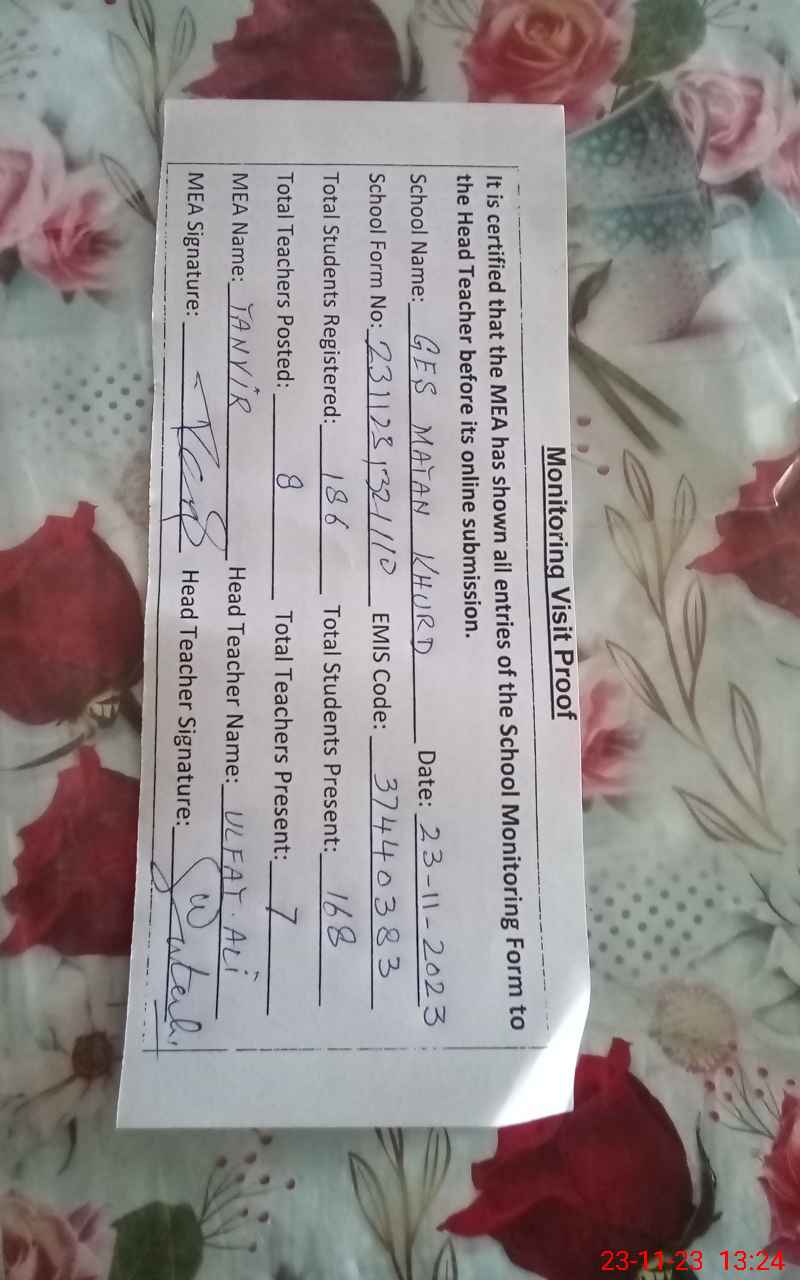 Monitoring Visit Proof
It is certified that the MEA has shown all entries of the School Monitoring Form to
the Head Teacher before its online submission.
School Name: GES MATAN KHURD Date: 23-11-2023
School Form No: EMIS Code: 37440383
Total Students Registered: 186 Total Students Present: 168
Total Teachers Posted: 8 Total Teachers Present: 7
MEA Name: TANVIR Head Teacher Name: ULFAT.ALI
MEA Signature: Head Teacher Signature:
23-11-23 13:24